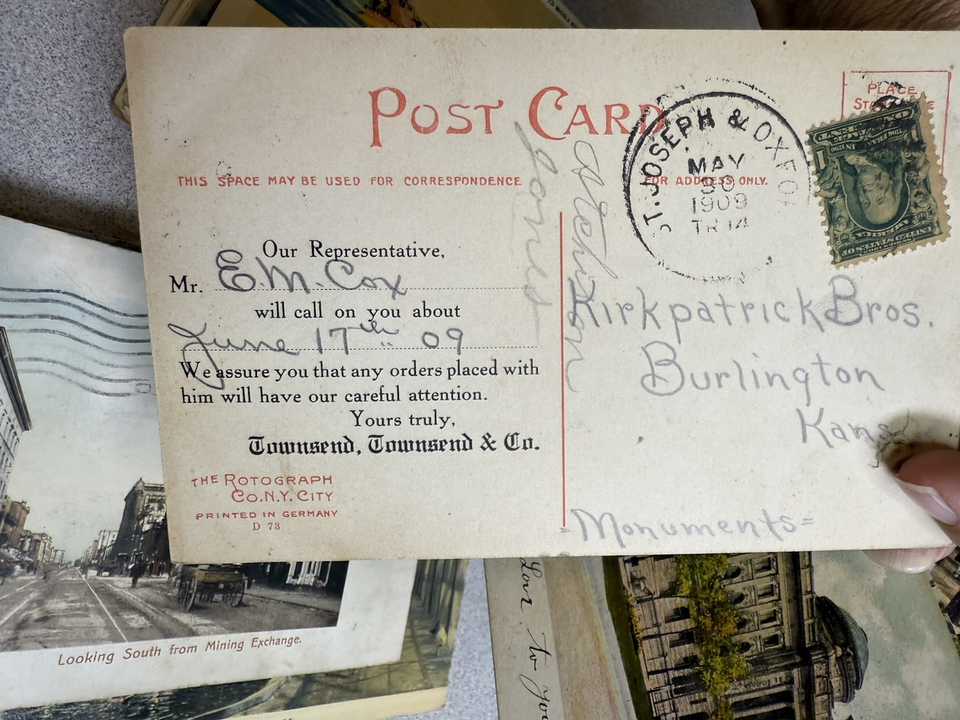 POST CARD
PLACE
THIS SPACE MAY BE USED FOR CORRESPONDENCE
FOR ADDRESS ONLY.
ST. JOSEPH & OXFO
MAY
30
1909
TR 14
Jones
Atchison
Our Representative,
Mr. E. M. Cox
will call on you about
June 17th 09
We assure you that any orders placed with
him will have our careful attention.
Yours truly,
Townsend, Townsend & Co.
THE ROTOGRAPH
CO. N.Y. CITY
PRINTED IN GERMANY
D 73
Kirkpatrick Bros.
Burlington
Kans
=Monuments=
Looking South from Mining Exchange.
to you